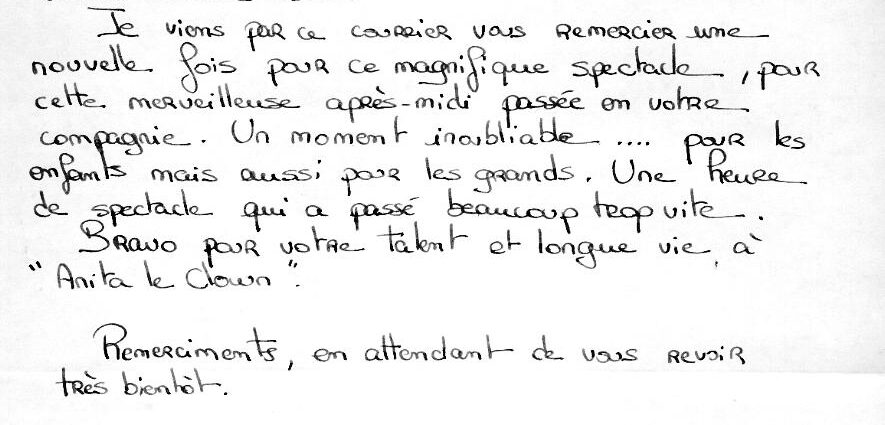 Je viens par ce courrier vous remercier une
nouvelle fois pour ce magnifique spectacle, pour
cette merveilleuse après-midi passée en votre
compagnie. Un moment inoubliable .... pour les
enfants mais aussi pour les grands. Une heure
de spectacle qui a passé beaucoup trop vite.
Bravo pour votre talent et longue vie à
"Anita le Clown".
Remerciments, en attendant de vous revoir
très bientôt.